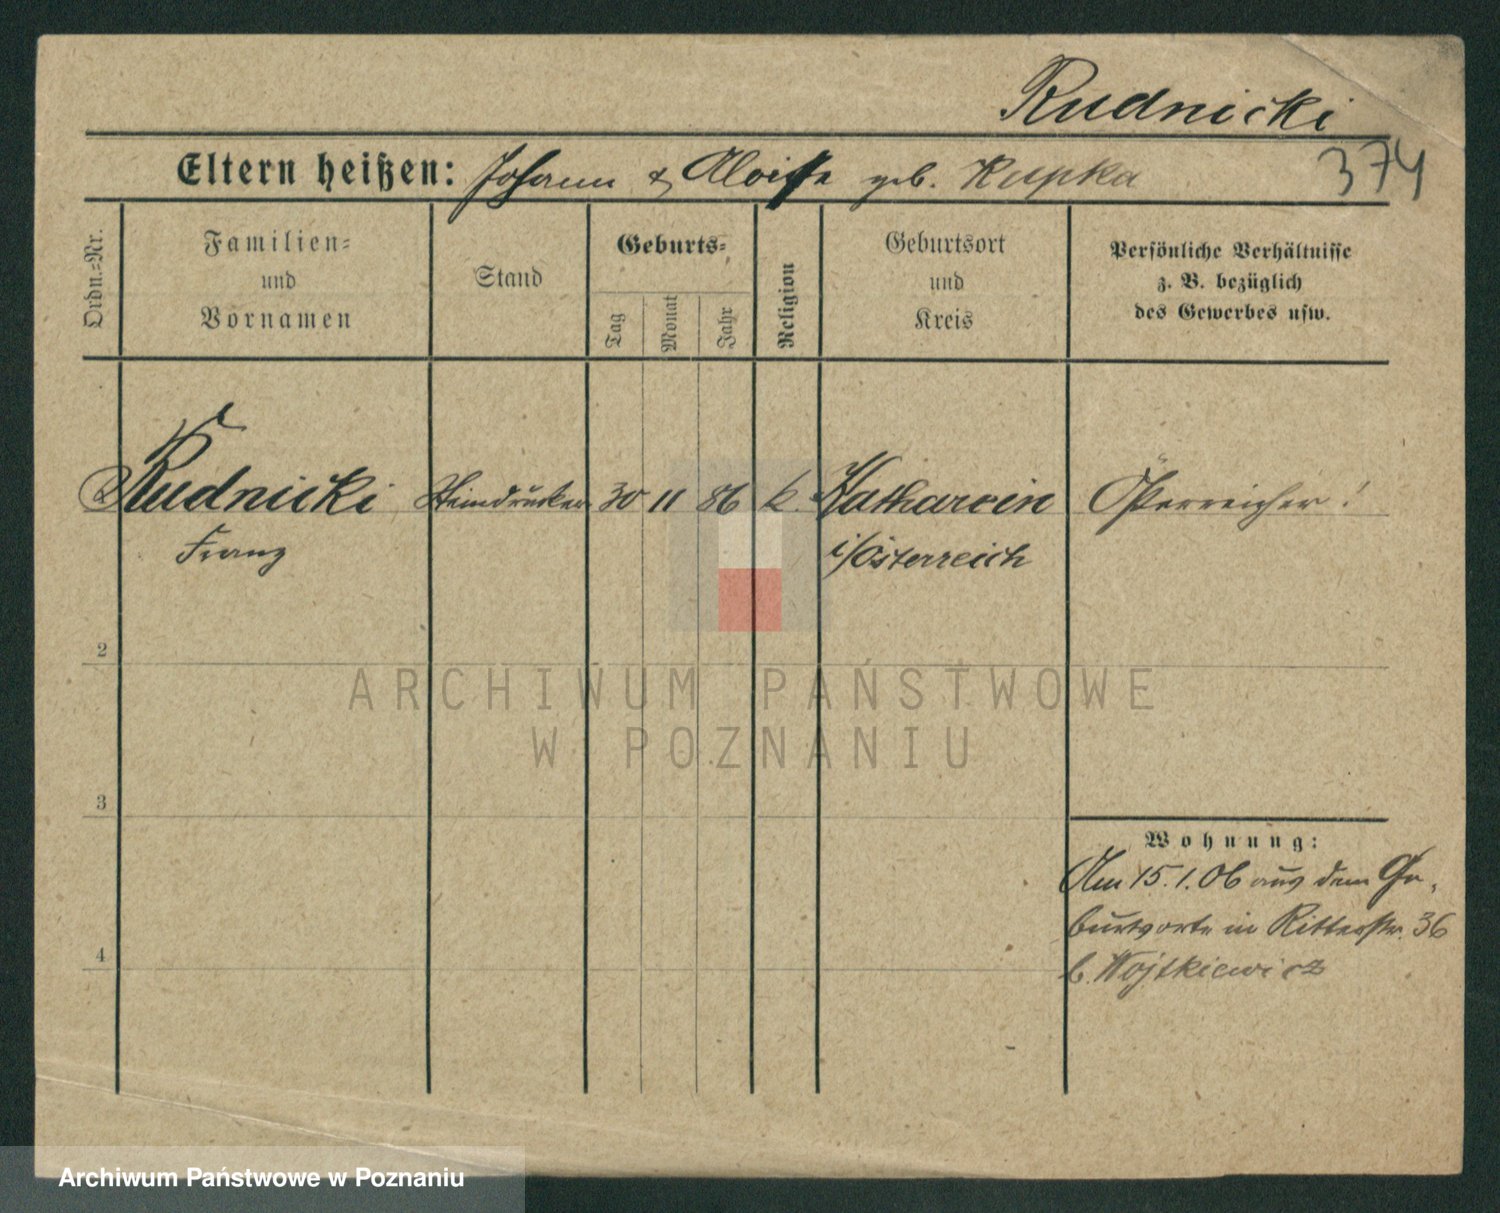 Rudnicki
Eltern heißen: Johann & Aloisia geb. Kupka
374
Ordn.-Nr.
Familien-
und
Vornamen
Stand
Geburts-
Tag
Monat
Jahr
Religion
Geburtsort
und
Kreis
Persönliche Verhältnisse
z. B. bezüglich
des Gewerbes usw.
Rudnicki Steindrucker 30 11 86 k. Katharein Österreicher!
Franz i/Österreich
2
3
4
Wohnung:
Am 15.1.06 aus dem Ge-
burtsorte in Ritterstr. 36
b. Wojtkiewicz
ARCHIWUM PAŃSTWOWE
W POZNANIU
Archiwum Państwowe w Poznaniu